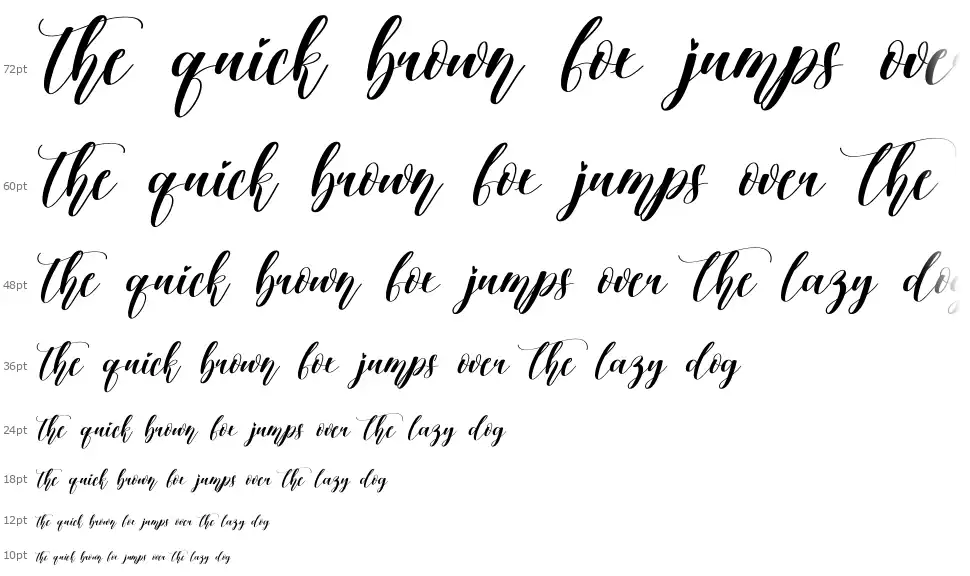 72pt the quick brown fox jumps ove
60pt the quick brown fox jumps over the
48pt the quick brown fox jumps over the lazy do
36pt the quick brown fox jumps over the lazy dog
24pt the quick brown fox jumps over the lazy dog
18pt the quick brown fox jumps over the lazy dog
12pt the quick brown fox jumps over the lazy dog
10pt the quick brown fox jumps over the lazy dog